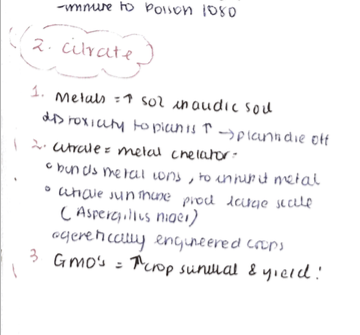 -immune to poison 1080
2. citrate
1. Metals = ↑ sol in acidic soil
↳ toxicity to plants ↑ → plants die off
2. citrate = metal chelator:
◦ binds metal ions, to inhibit metal
◦ citrate synthase prod large scale
(Aspergillus niger)
◦ genetically engineered crops
3 GMO's = ↑ crop survival & yield!